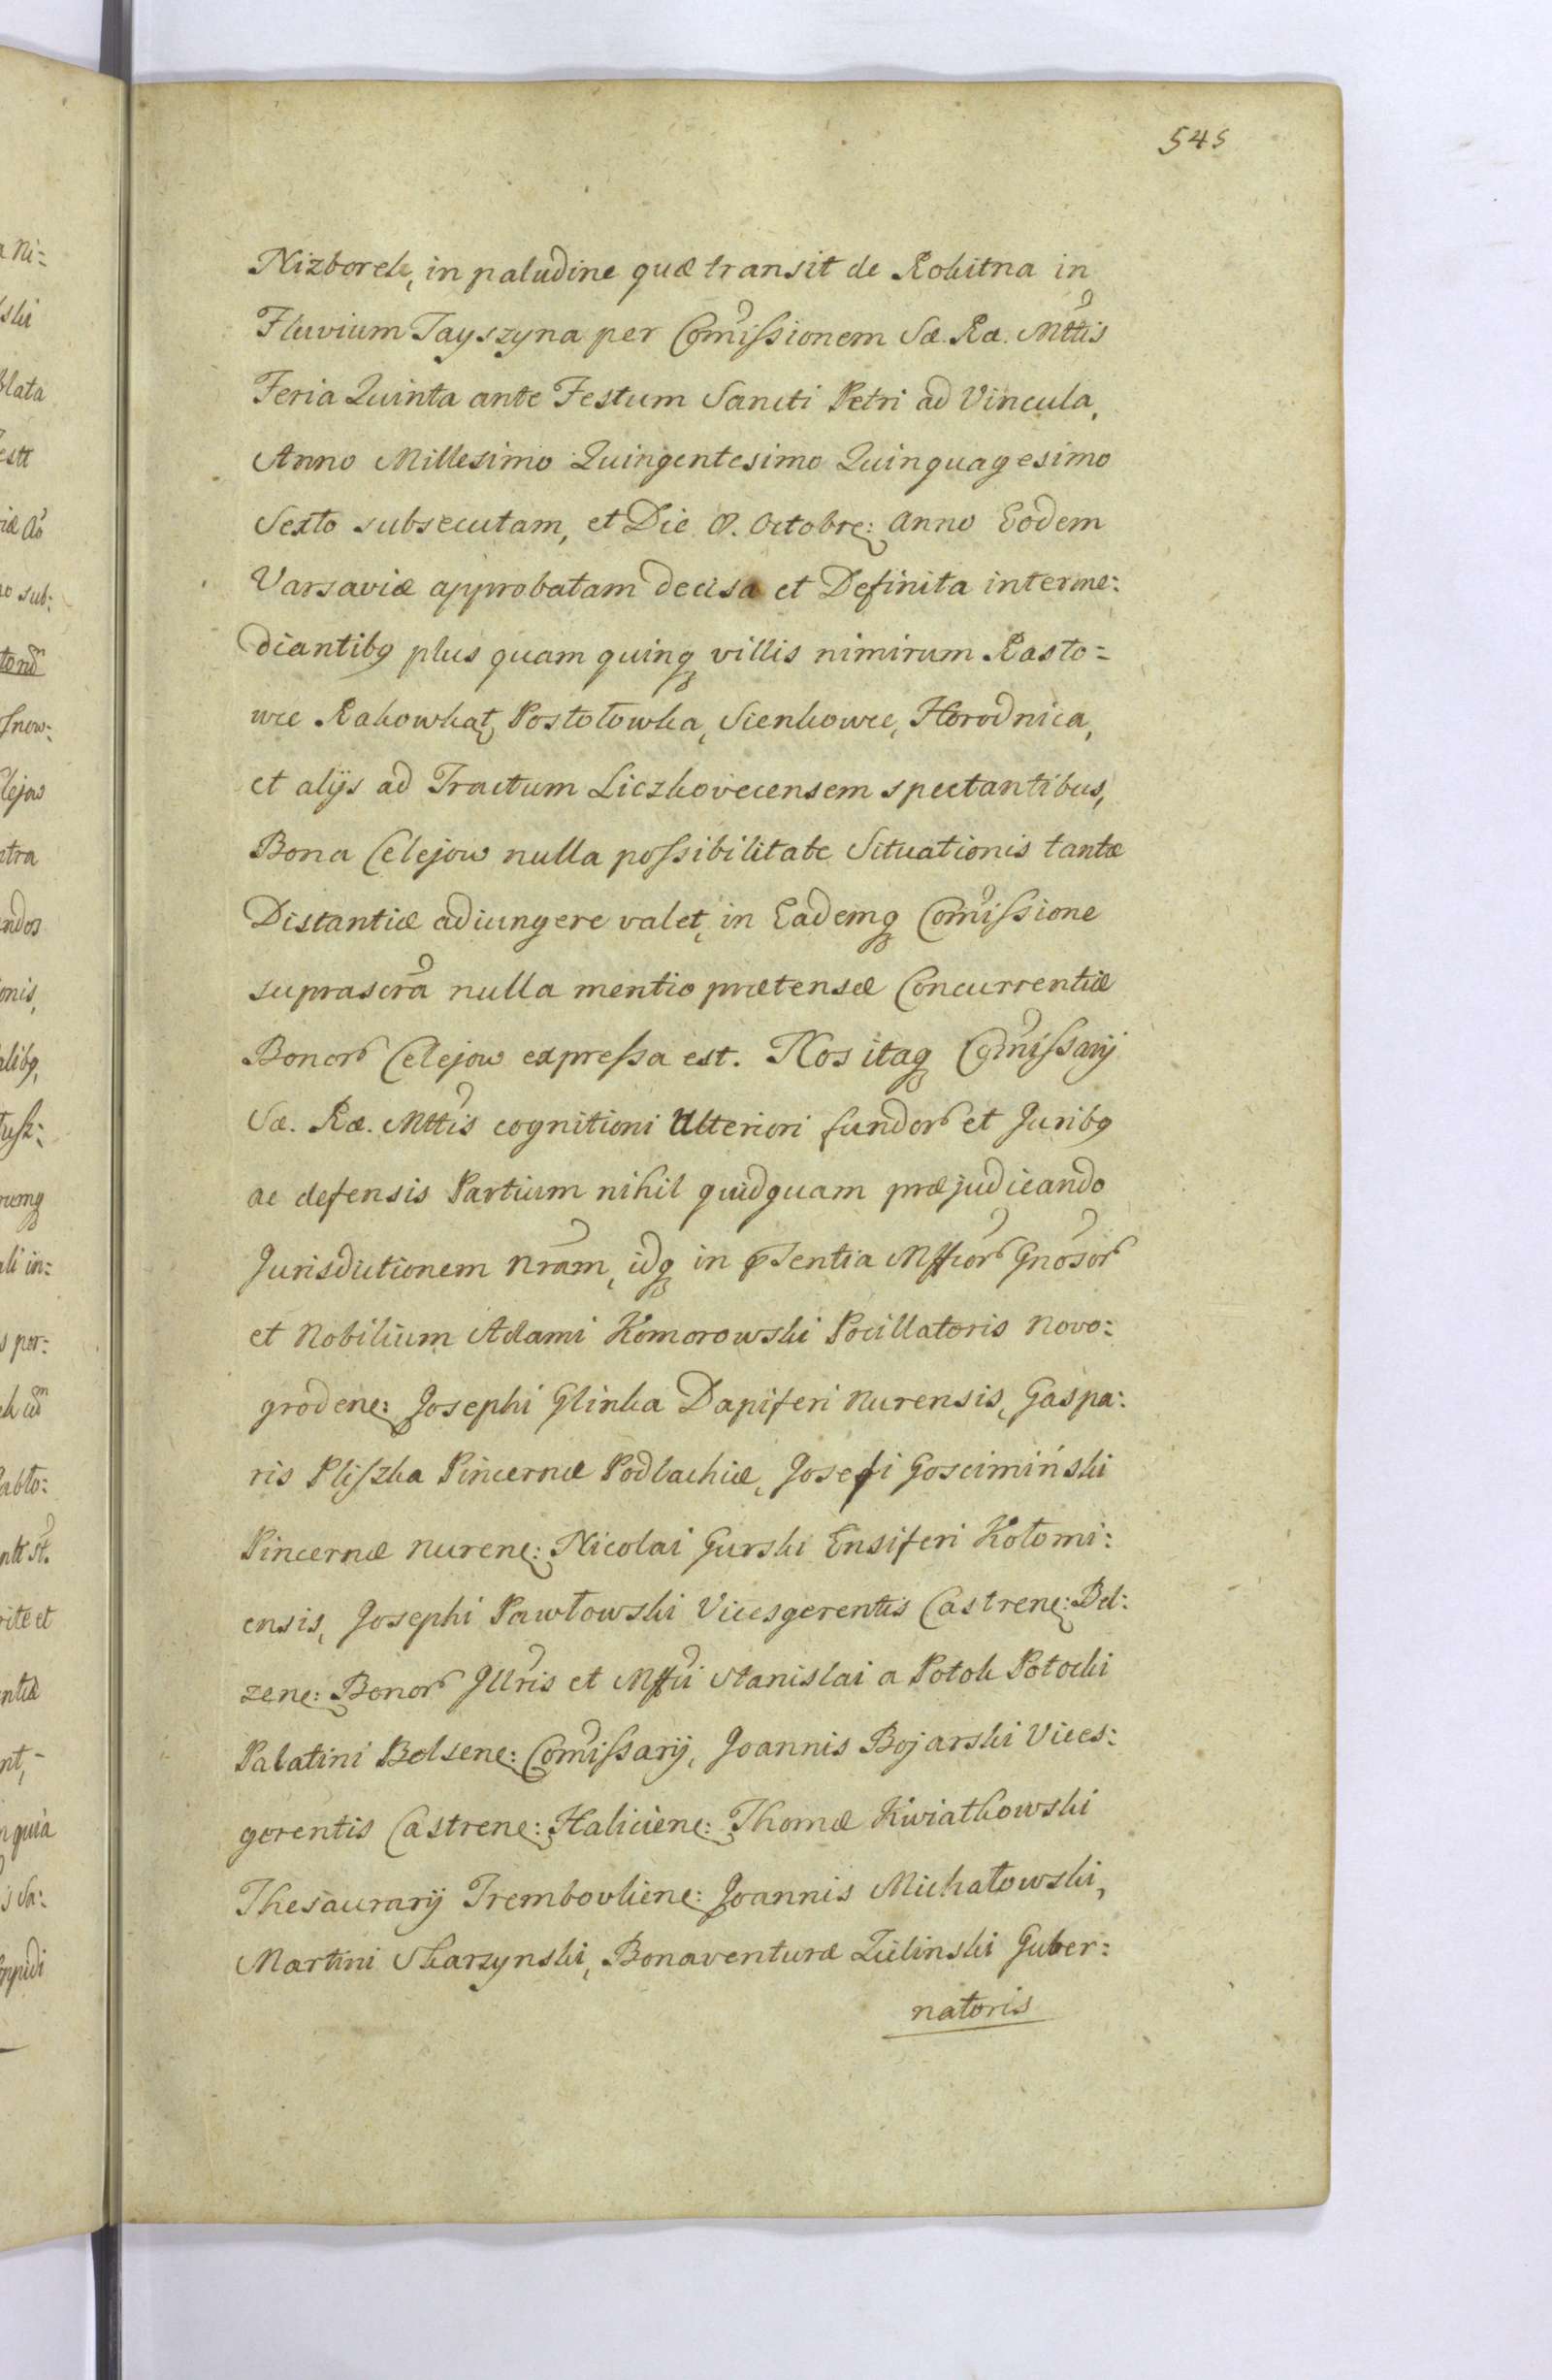 545
Nizborek, in paludine quæ transit de Rokitna in
Fluvium Tayszyna per Com̃issionem Sæ. Ræ. Mttis
Feria Quinta ante Festum Sancti Petri ad Vincula,
Anno Millesimo Quingentesimo Quinquagesimo
Sexto subsecutam, et Die 8. Octobre: Anno Eodem
Varsaviæ approbatam decisa et Definita interme:
diantibq plus quam quinq villis nimirum Rasto=
wce Rakowkat, Postołowka, Sienkowce, Horodnica,
et alijs ad Tractum Liczkovecensem spectantibus,
Bona Celejow nulla possibilitate Situationis tantæ
Distantiæ adiungere valet, in Eademq Com̃issione
suprascrã nulla mentio prætensæ Concurrentiæ
Bonor Celejow expressa est. Nos itaq Com̃issarij
Sæ. Ræ. Mttis cognitioni Ulteriori fundor et Juribq
ac defensis Partium nihil quidquam præjudicando
Jurisdictionem nrãm, idq in psentia Mffcor Gnosor
et Nobilium Adami Komorowski Pocillatoris Novo:
grodene: Josephi Glinka Dapiferi Nurensis, Gaspa:
ris Pliszka Pincernæ Podlachiæ, Josefi Gosciminski
Pincernæ Nurene: Nicolai Gurski Ensiferi Kołomi:
ensis, Josephi Pawłowski Vicesgerentis Castrene: Bel:
zene: Bonor Jllris et Mffci Stanislai a Potok Potocki
Palatini Belsene: Com̃issarij, Joannis Bojarski Vices:
gerentis Castrene: Haliciene: Thomæ Kwiatkowski
Thesaurarij Trembovliene: Joannis Michałowski,
Martini Skarzynski, Bonaventuræ Zielinski Guber:
natoris